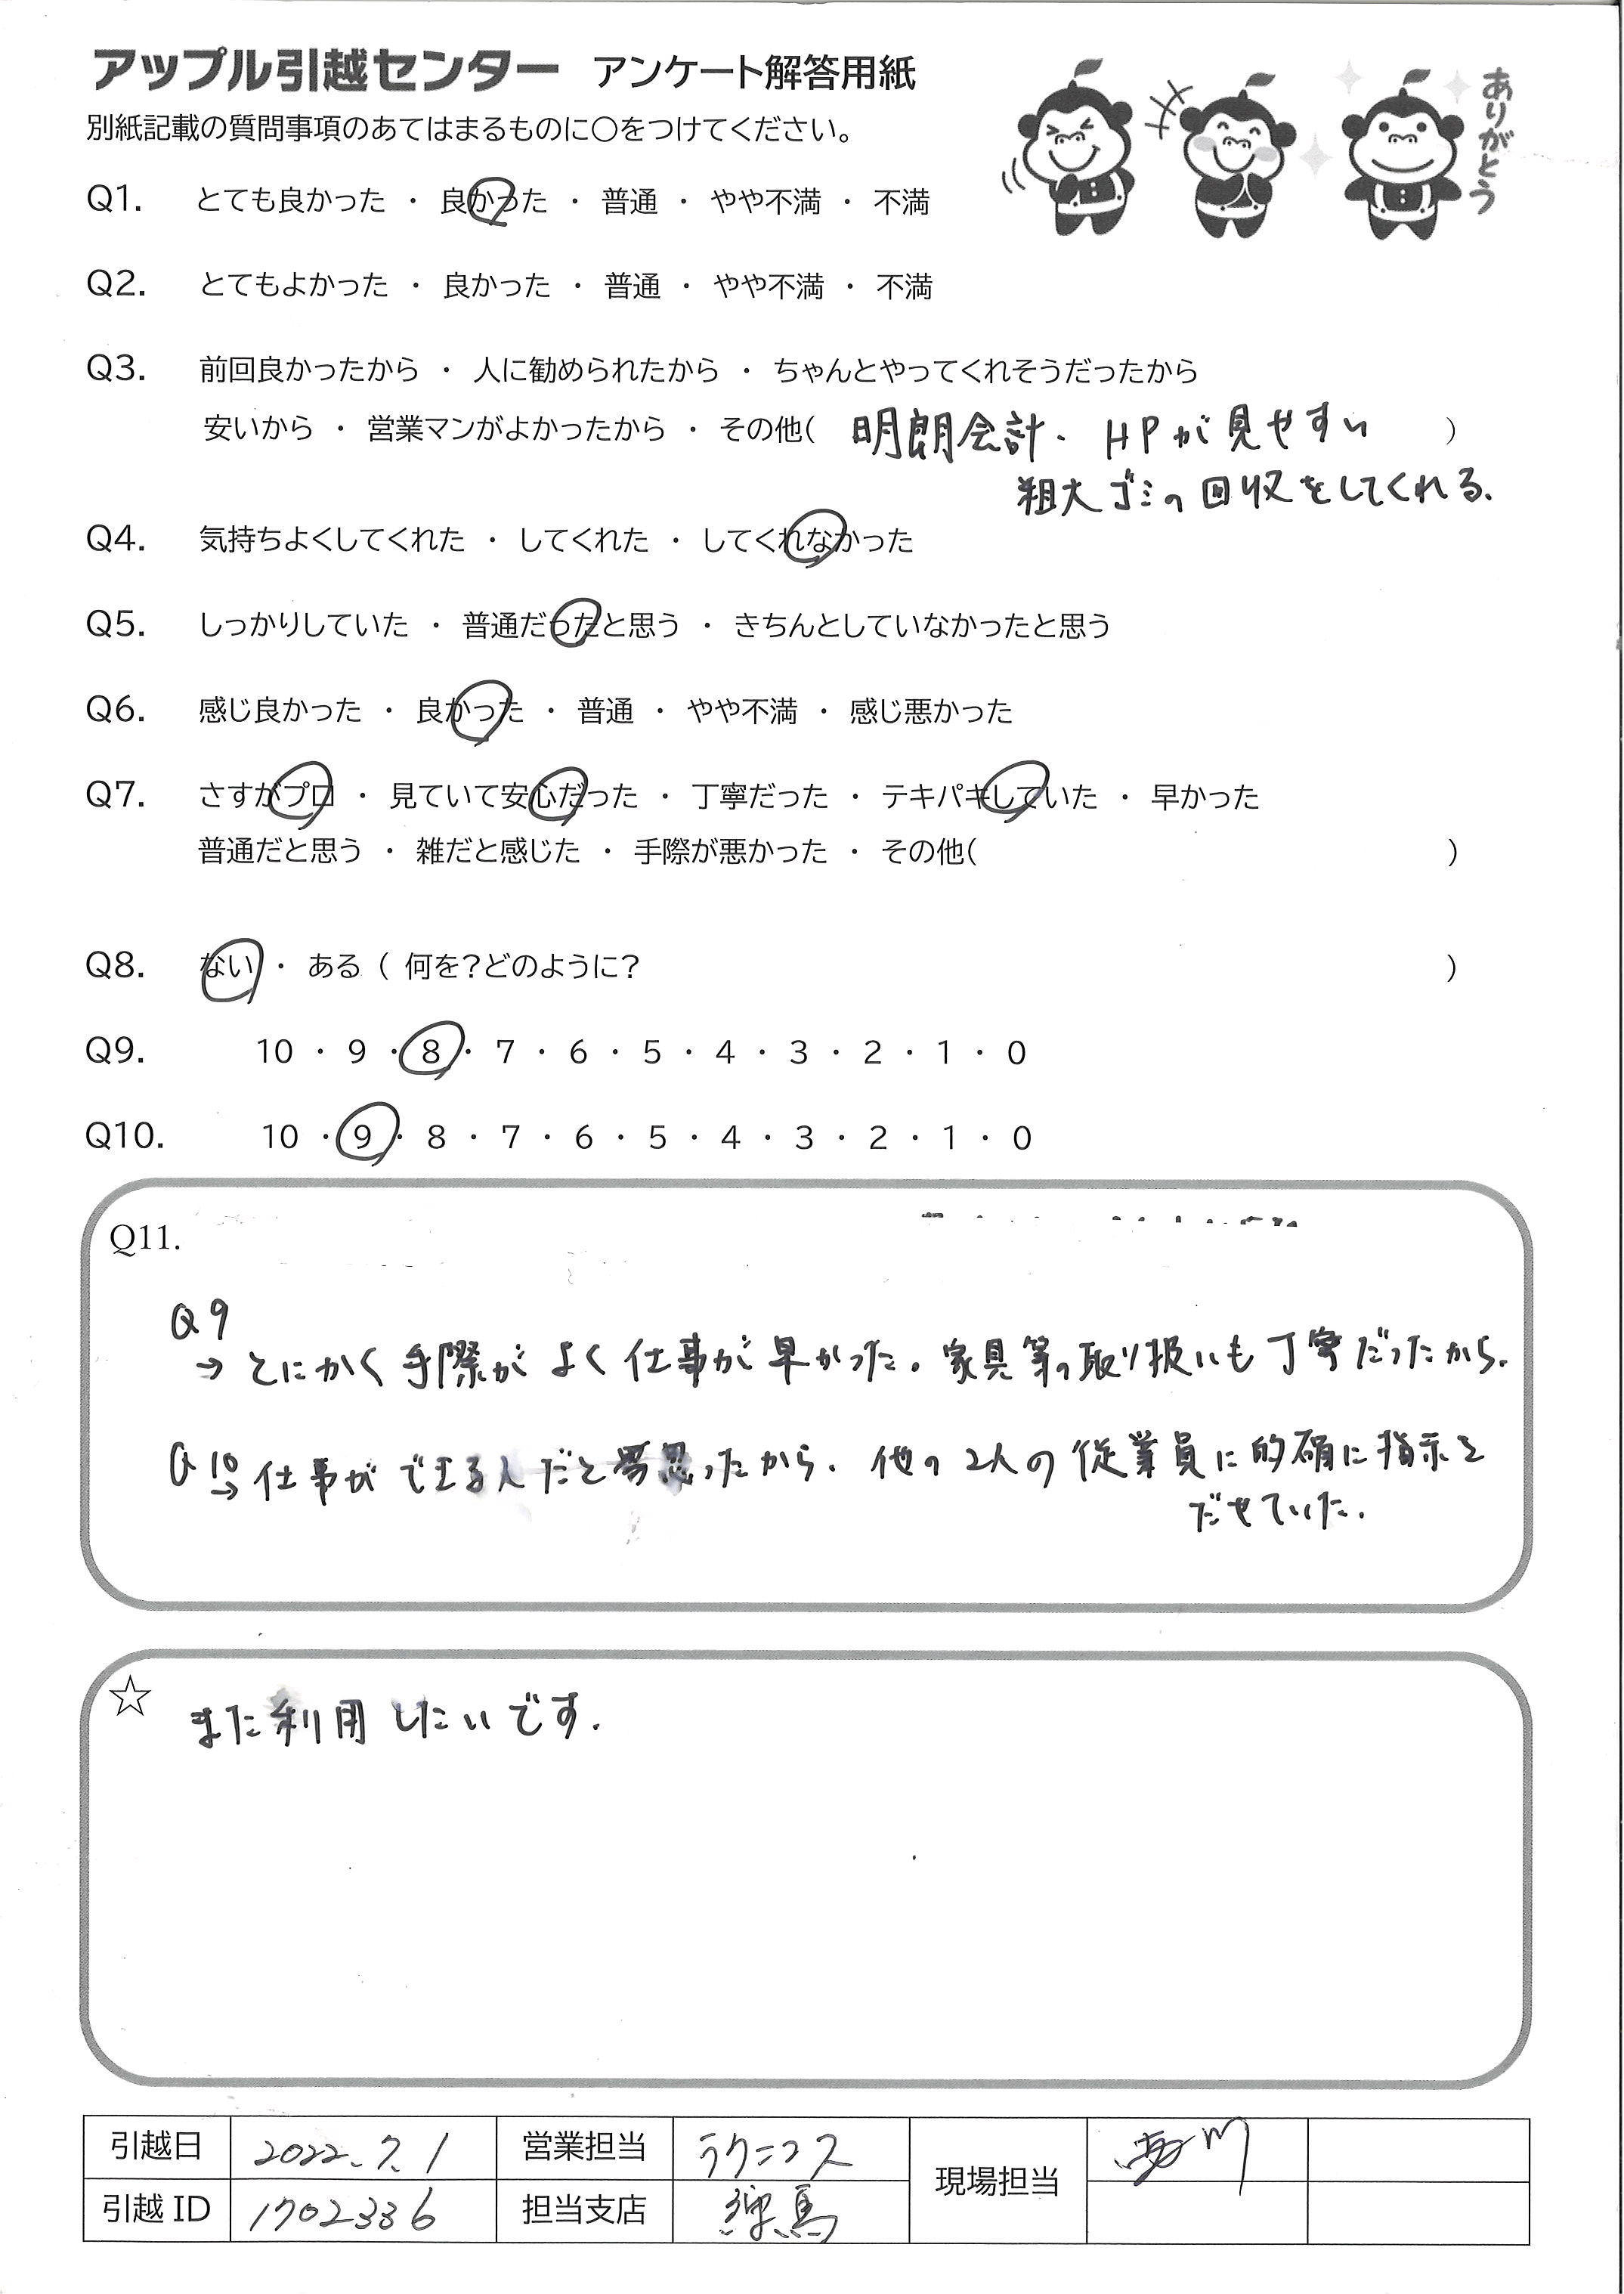 アップル引越センター アンケート解答用紙
ありがとう
別紙記載の質問事項のあてはまるものに○をつけてください。
Q1. とても良かった ・ 良かった ・ 普通 ・ やや不満 ・ 不満
Q2. とてもよかった ・ 良かった ・ 普通 ・ やや不満 ・ 不満
Q3. 前回良かったから ・ 人に勧められたから ・ ちゃんとやってくれそうだったから
安いから ・ 営業マンがよかったから ・ その他( 明朗会計、HPが見やすい )
粗大ゴミの回収をしてくれる。
Q4. 気持ちよくしてくれた ・ してくれた ・ してくれなかった
Q5. しっかりしていた ・ 普通だったと思う ・ きちんとしていなかったと思う
Q6. 感じ良かった ・ 良かった ・ 普通 ・ やや不満 ・ 感じ悪かった
Q7. さすがプロ ・ 見ていて安心だった ・ 丁寧だった ・ テキパキしていた ・ 早かった
普通だと思う ・ 雑だと感じた ・ 手際が悪かった ・ その他( )
Q8. ない ・ ある ( 何を?どのように? )
Q9. 10 ・ 9 ・ 8 ・ 7 ・ 6 ・ 5 ・ 4 ・ 3 ・ 2 ・ 1 ・ 0
Q10. 10 ・ 9 ・ 8 ・ 7 ・ 6 ・ 5 ・ 4 ・ 3 ・ 2 ・ 1 ・ 0
Q11.
Q9
→とにかく手際がよく仕事が早かった。家具等の取り扱いも丁寧だったから。
Q10→仕事ができる人だと思ったから。他の2人の従業員に的確に指示を
だせていた。
☆ また利用したいです。
引越日 2022.7.1 営業担当 ラクニコス 現場担当
引越ID 1702336 担当支店 練馬